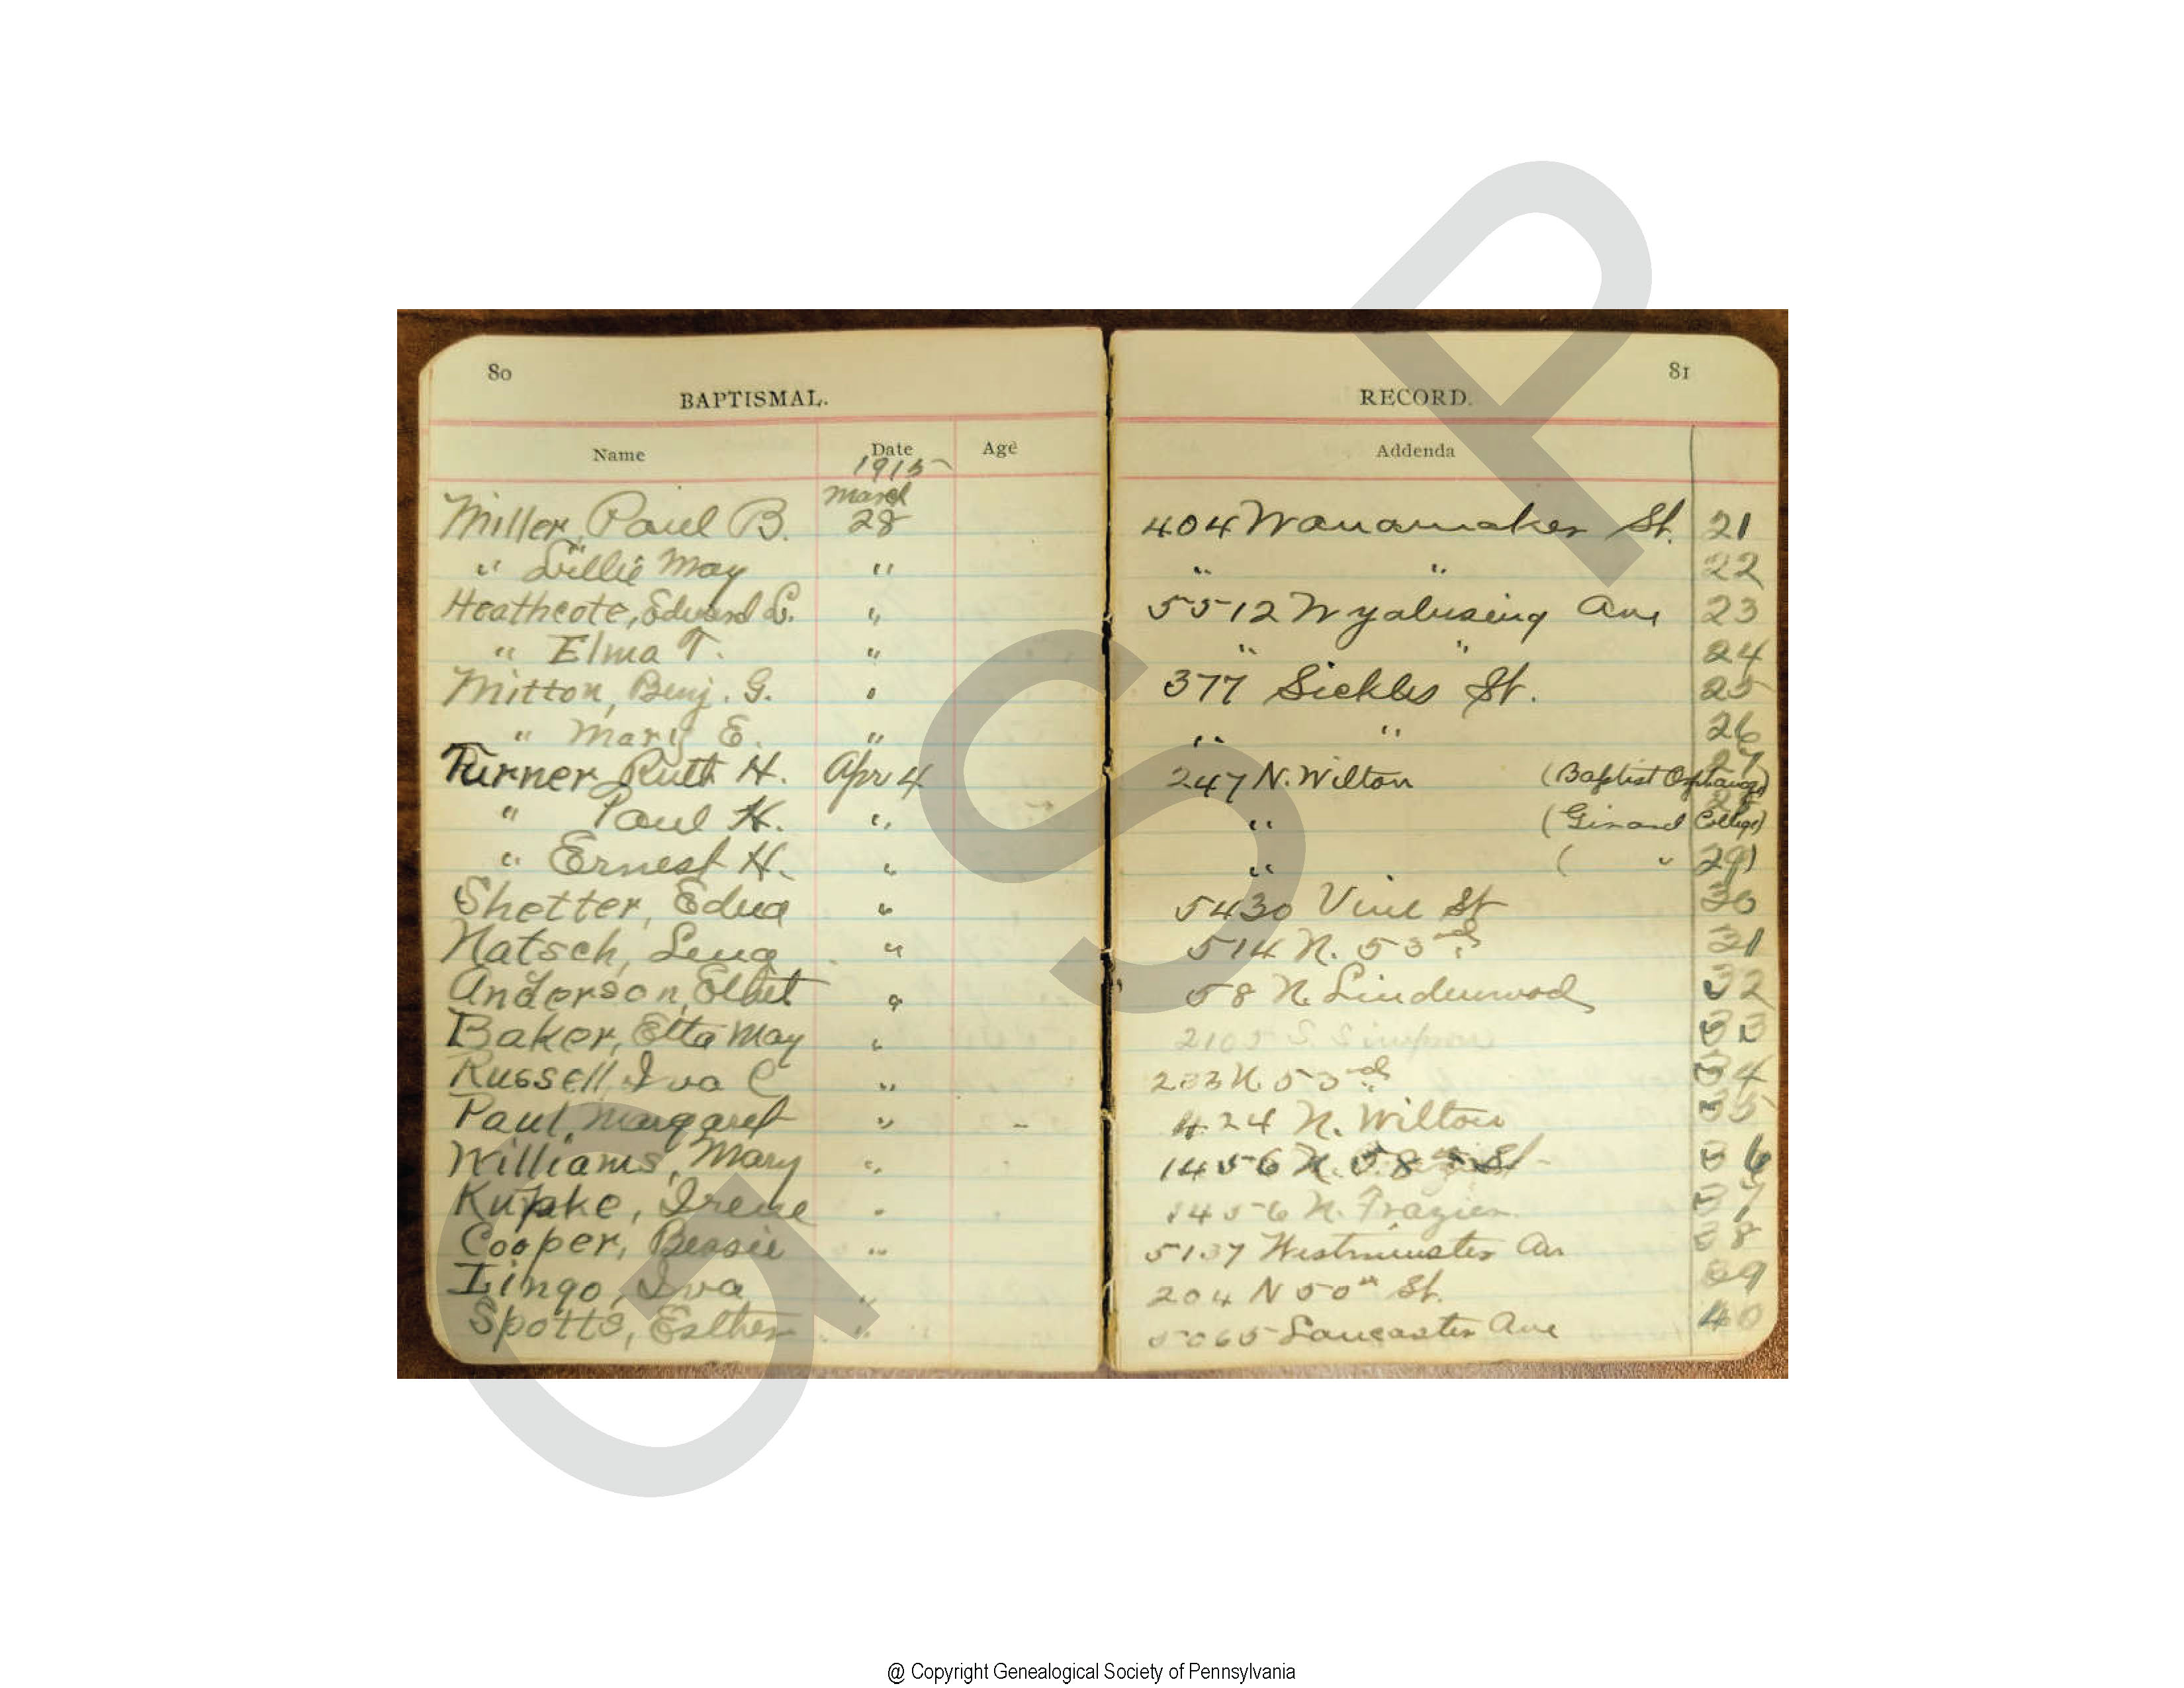 80
BAPTISMAL.
Name Date Age
1915
March
Miller, Paul B. 28
" Lillie May "
Heathcote, Edward L. "
" Elma T. "
Mitton, Benj. G. "
" Mary E. "
Turner, Ruth H. Apr 4
" Paul H. "
" Ernest H. "
Shetter, Edna "
Natsch, Lena "
Anderson, "
Baker, Etta May "
Russell, Iva C "
Paul, Margaret "
Williams, Mary "
Kupke, Irene "
Cooper, Bessie "
Lingo, Iva "
Spotts, Esther "
81
RECORD.
Addenda
404 Wanamaker St. 21
" " 22
5512 Wyalusing Ave 23
" " 24
377 Sickles St. 25
" " 26
247 N. Wilton (Baptist Orphanage) 27
" (Girard College) 28
" ( " ) 29
5430 Vine St 30
514 N. 53rd 31
58 N. Lindenwood 32
2105 S. Simpson 33
233 N. 53rd 34
424 N. Wilton 35
1456 N. 58 St 36
1456 N. Frazier 37
5137 Westminster Av 38
204 N 50th St. 39
5065 Lancaster Ave 40
GSP
@ Copyright Genealogical Society of Pennsylvania